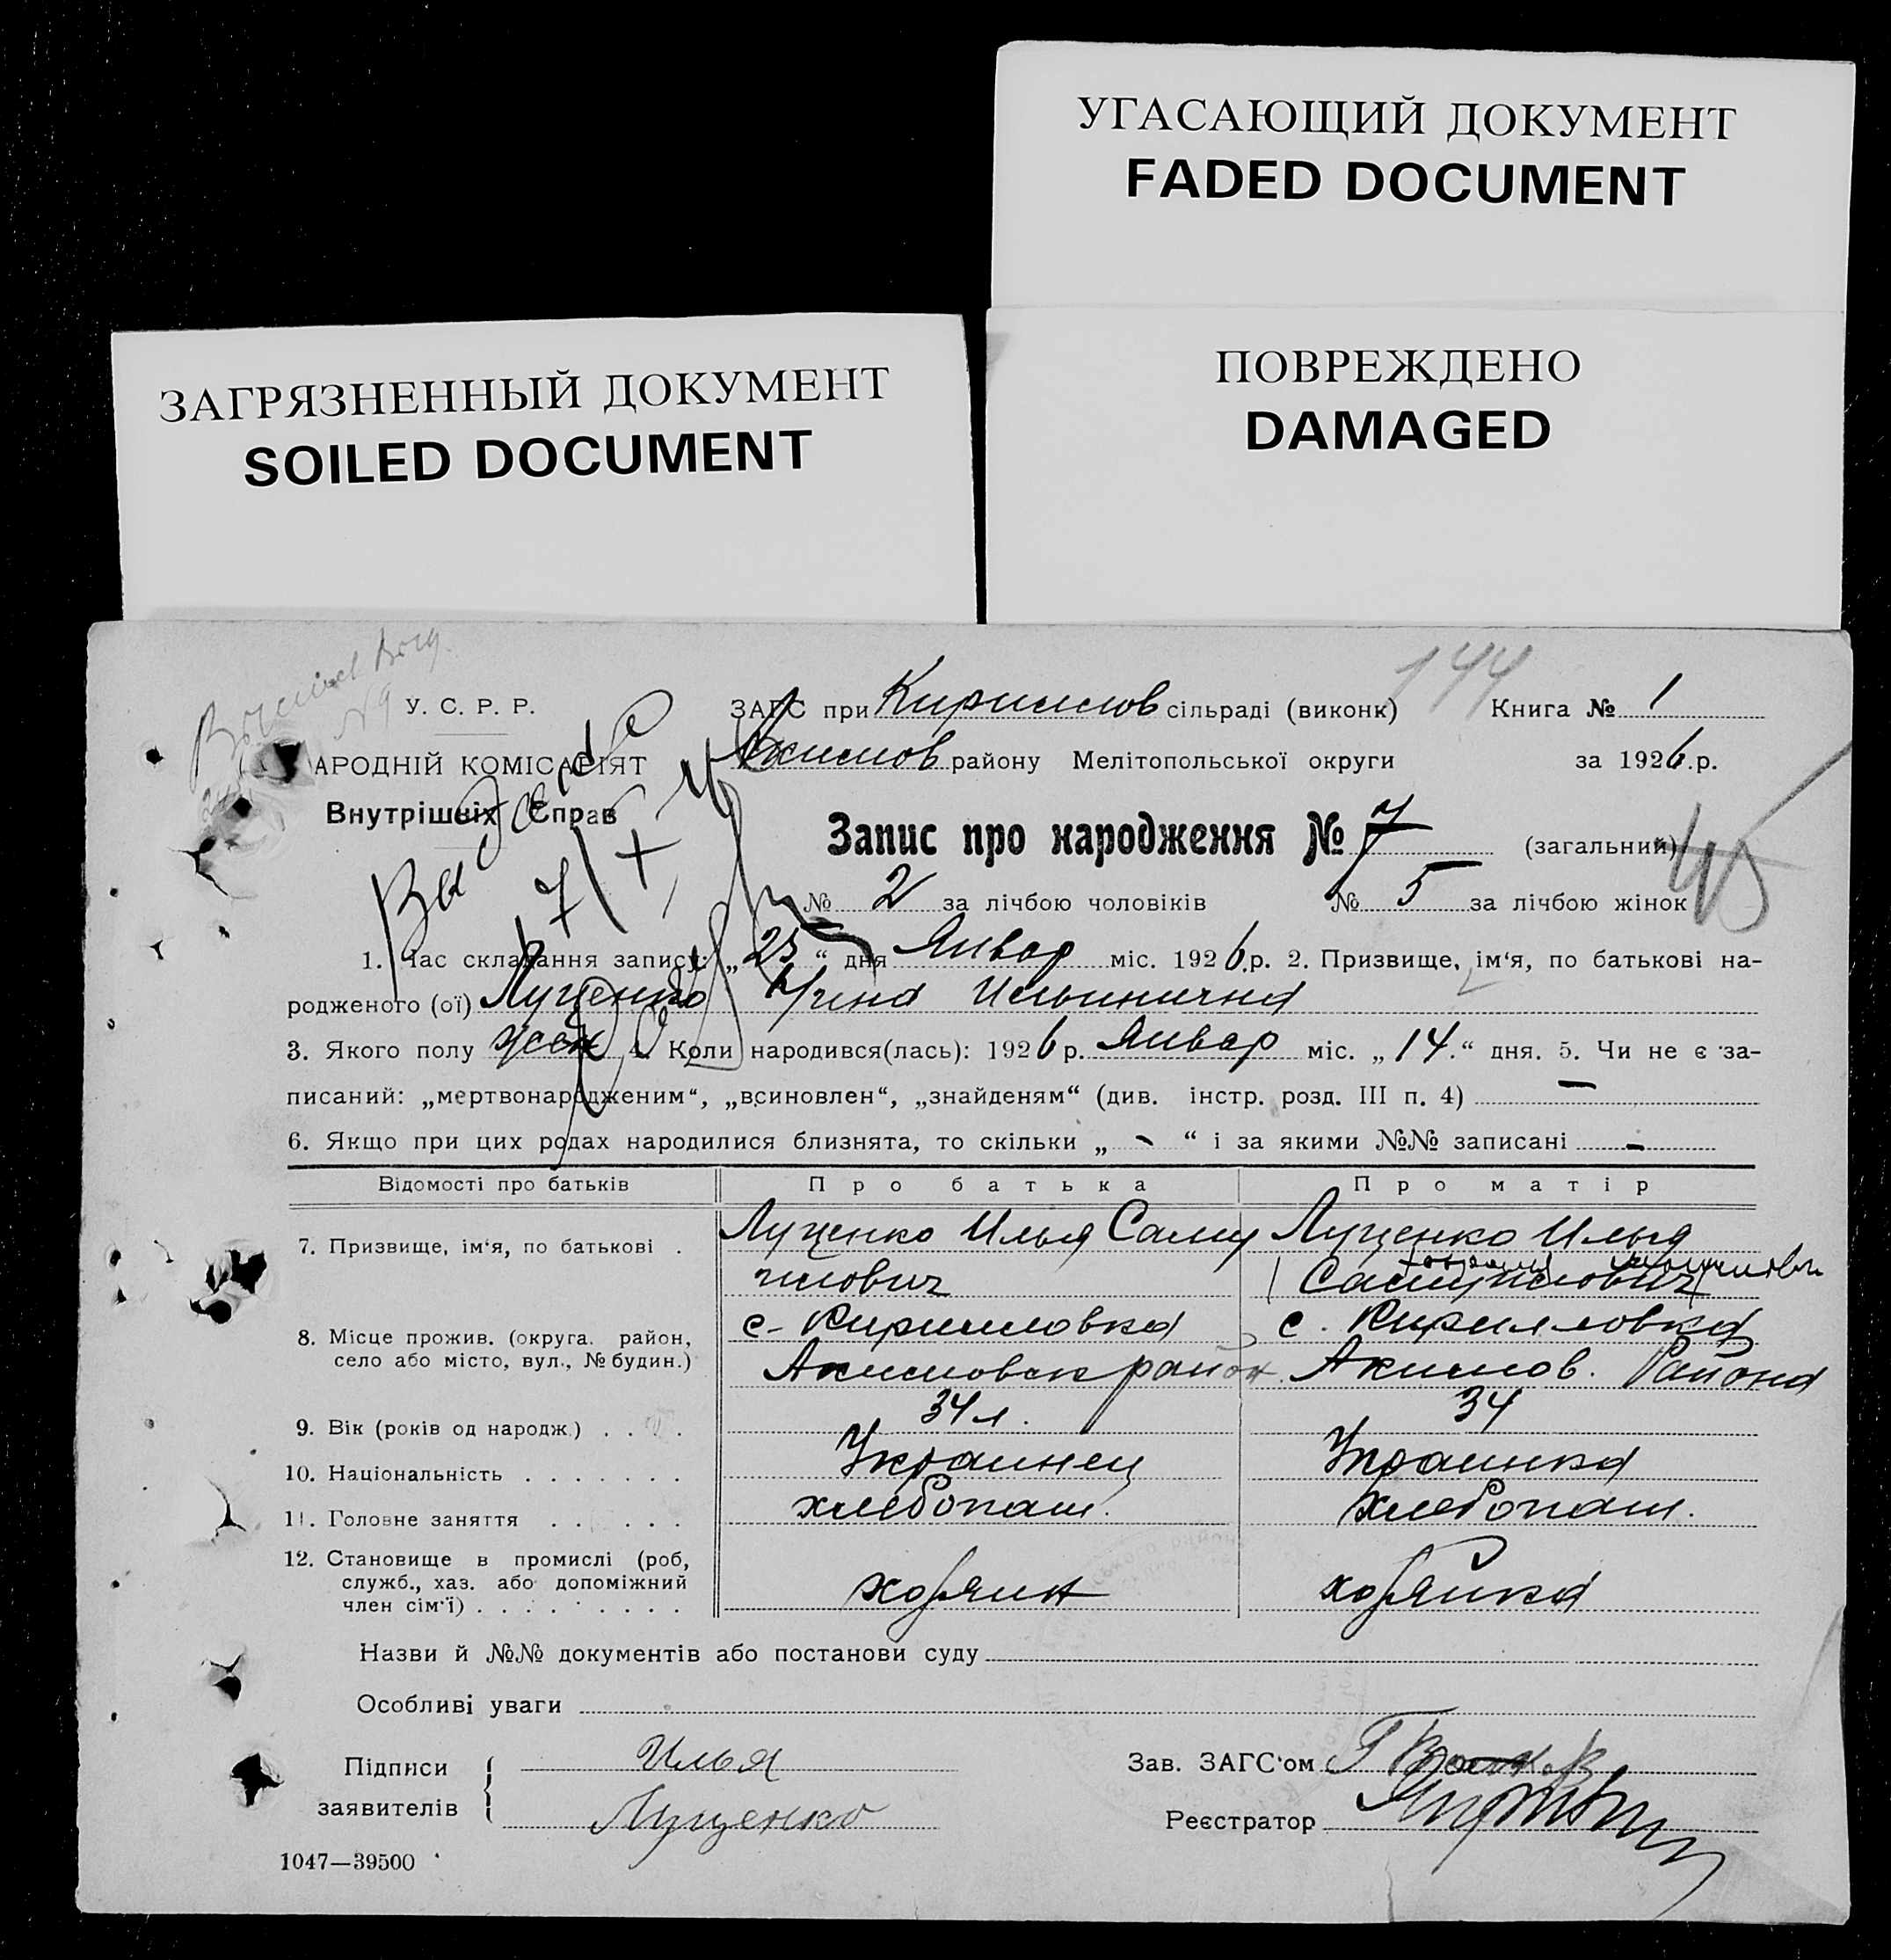 УГАСАЮЩИЙ ДОКУМЕНТ
FADED DOCUMENT
ЗАГРЯЗНЕННЫЙ ДОКУМЕНТ
SOILED DOCUMENT
ПОВРЕЖДЕНО
DAMAGED
144
У. С. Р. Р.
ЗАГС при Кириллов сільраді (виконк) Книга № 1
АРОДНІЙ КОМІСАРІЯТ
Акимов району Мелітопольської округи за 1926 р.
Внутрішніх Справ
Запис про народження № 7 (загальний)
45
№ 2 за лічбою чоловіків № 5 за лічбою жінок
1. Час складання запису: „25“ дня Январ міс. 1926 р. 2. Призвище, ім‘я, по батькові на-
родженого (ої) Луценко Ильинична
3. Якого полу жен 4. Коли народився(лась): 1926 р. Январ міс. „14.“ дня. 5. Чи не є за-
писаний: „мертвонародженим“, „всиновлен“, „знайденям“ (див. інстр. розд. III п. 4) —
6. Якщо при цих родах народилися близнята, то скільки „ - “ і за якими №№ записані -
Відомості про батьків Про батька Про матір
7. Призвище, ім‘я, по батькові . Луценко Илья Саму Луценко Илья
илович Самуилович
8. Місце прожив. (округа, район, село або місто, вул., № будин.) с. Кирилловка с. Кирилловка
Акимовск район Акимов. Района
9. Вік (років од народж.) . . . . 34 л. 34
10. Національність . . . . . . . Украинец Украинка
11. Головне заняття . . . . . . хлебопаш. хлебопаш.
12. Становище в промислі (роб, служб., хаз. або допоміжний член сім‘ї) . . . . . . . . . хозяин хозяйка
Назви й №№ документів або постанови суду
Особливі уваги
Підписи заявителів Илья
Луценко
Зав. ЗАГС‘ом
Реєстратор
1047—39500